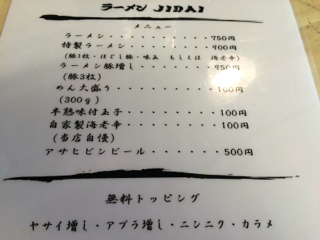 ラーメン JIDAI
メニュー
ラーメン・・・・・・・・・・・・750円
特製ラーメン・・・・・・・・・・900円
(豚1枚・ほぐし豚・味玉 もしくは 海老辛)
ラーメン豚増し・・・・・・・・・950円
(豚3枚)
めん大盛り・・・・・・・・・・・100円
(300g)
半熟味付玉子・・・・・・・・・・100円
自家製海老辛・・・・・・・・・・100円
(当店自慢)
アサヒビンビール・・・・・・・・500円
無料トッピング
ヤサイ増し・アブラ増し・ニンニク・カラメ